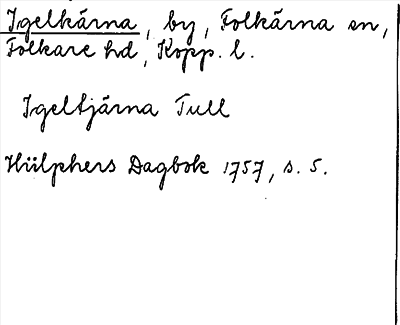 Igelkärna, by, Folkärna sn,
Folkare hd, Kopp. l.
Igeltjärna Tull
Hülphers Dagbok 1757, s. 5.